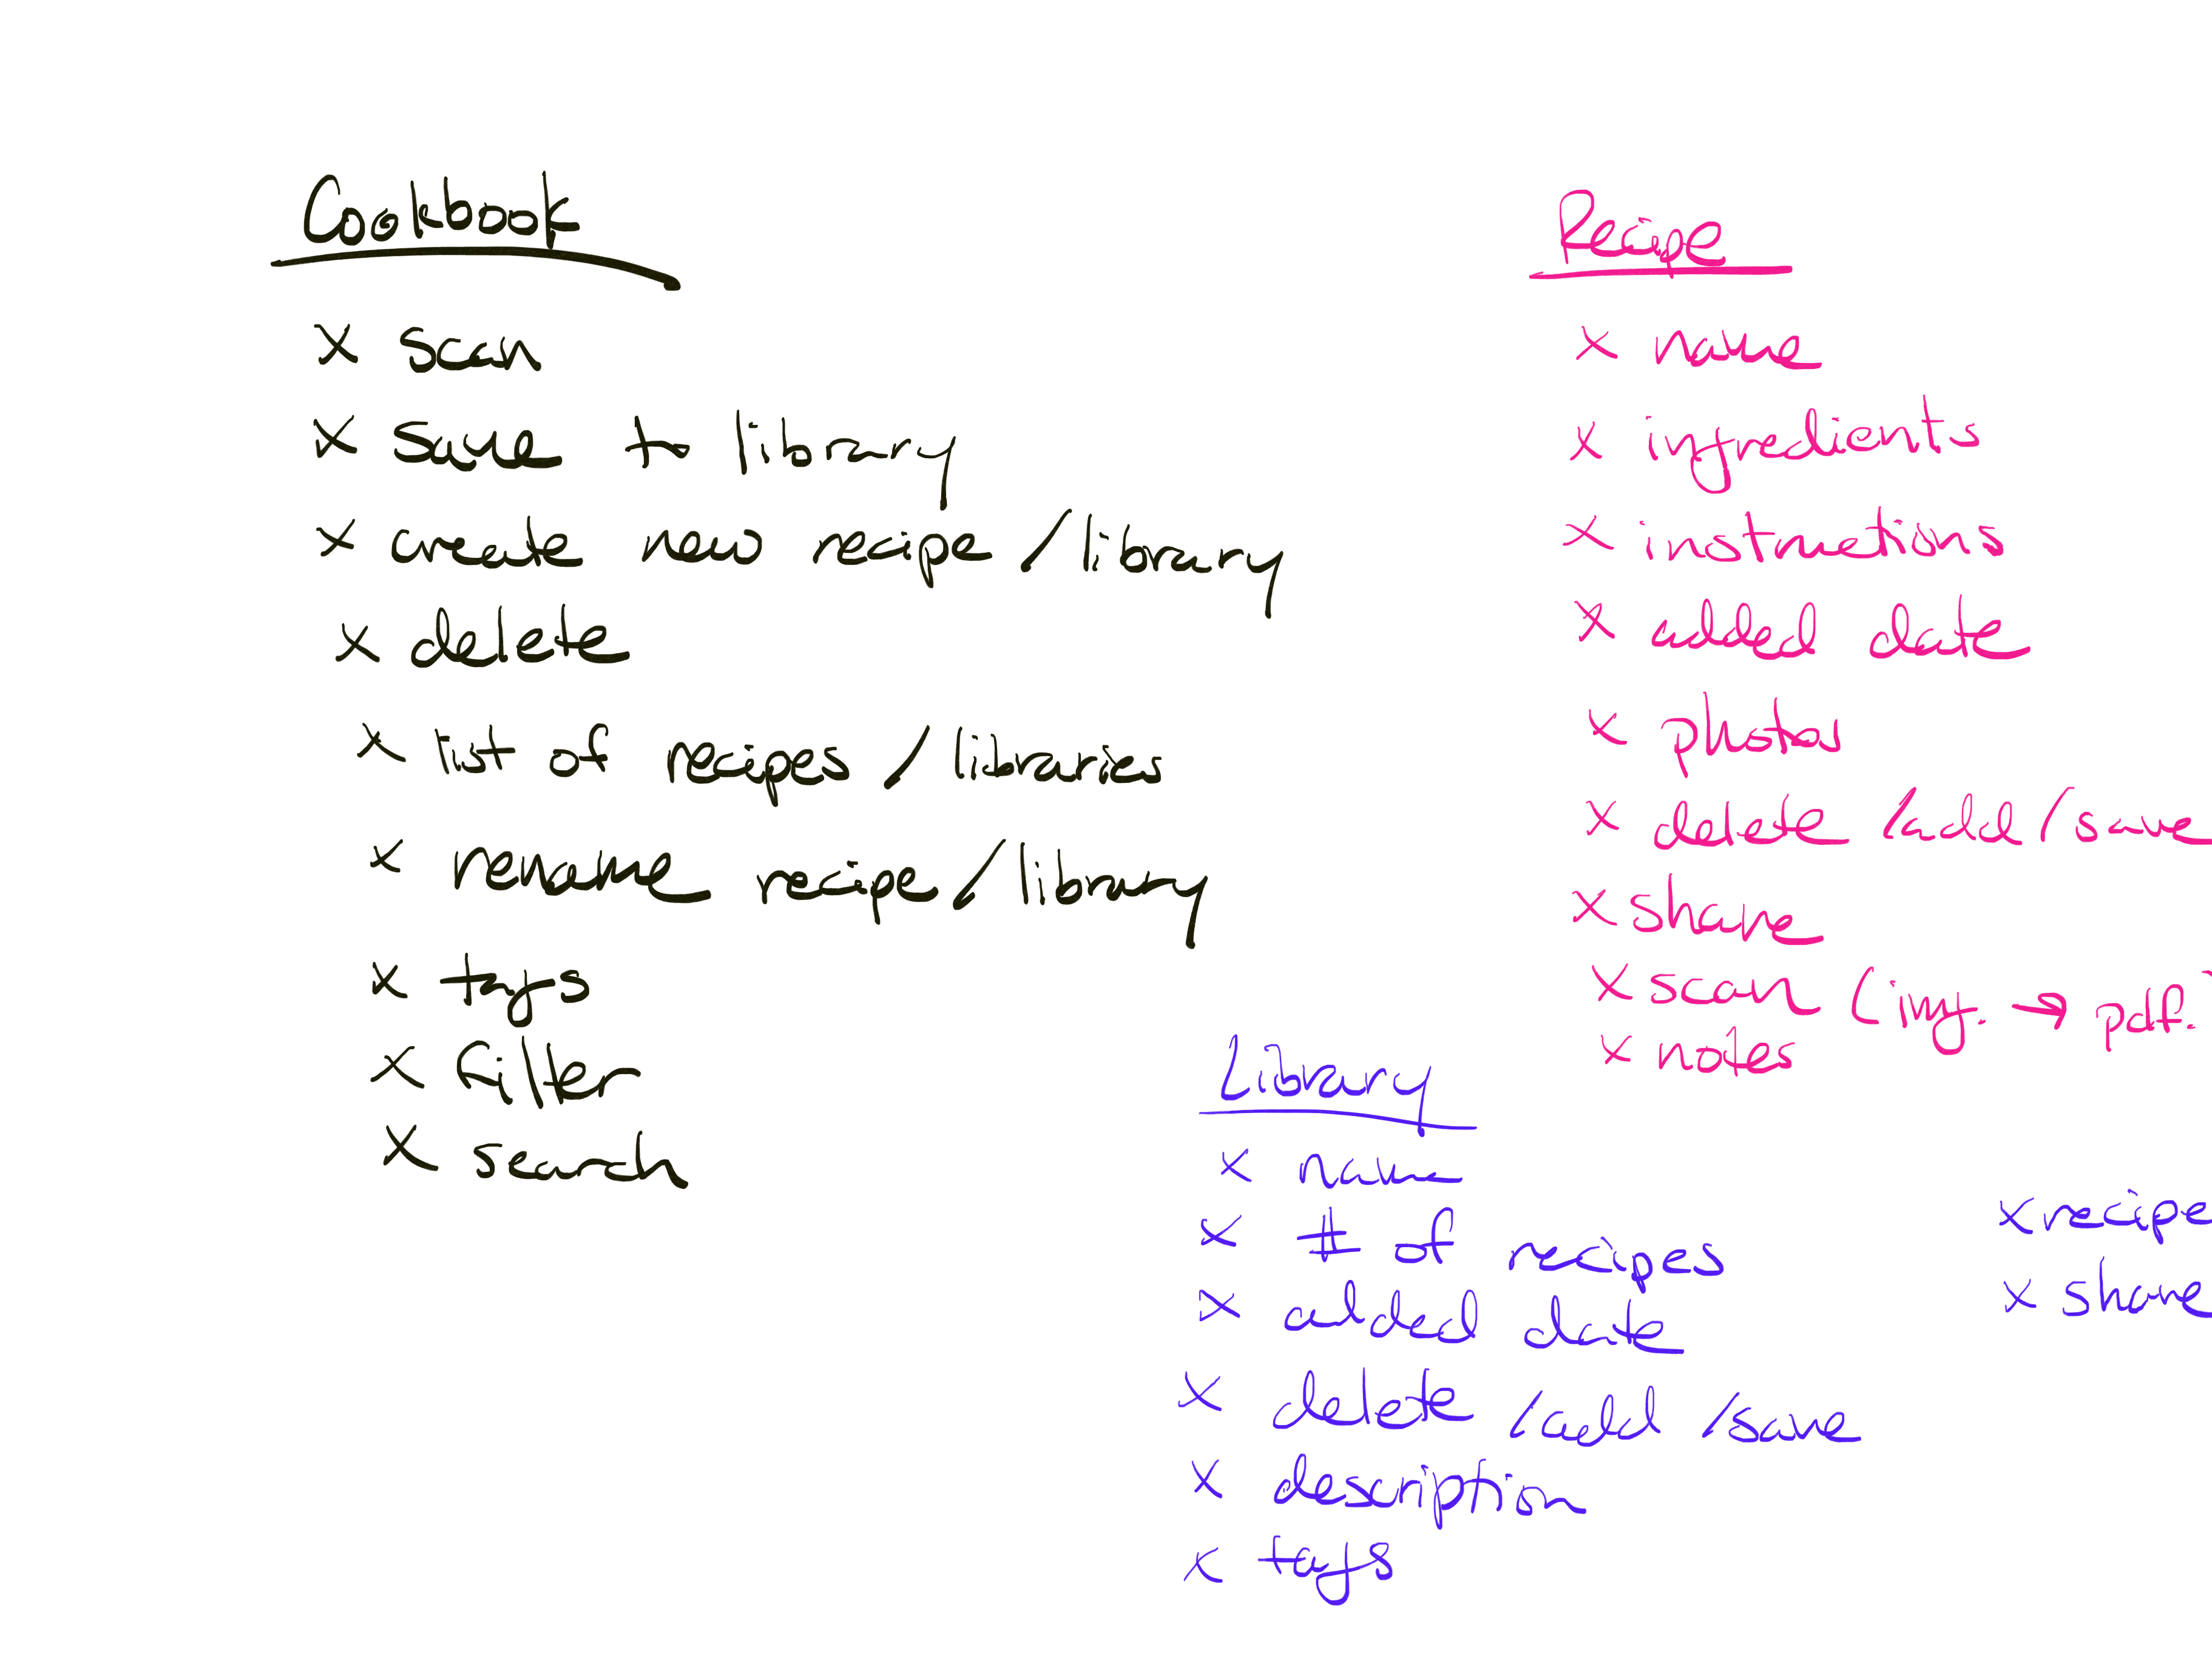 Cookbook
x scan
x save to library
x create new recipe/library
x delete
x list of recipes/libraries
x rename recipe/library
x tags
x filter
x search
Recipe
x name
x ingredients
x instructions
x added date
x photos
x delete/add/save
x share
x scan (img. → pdf.
x notes
Library
x name
x # of recipes
x added date
x delete/add/save
x description
x tags
x recipe
x share